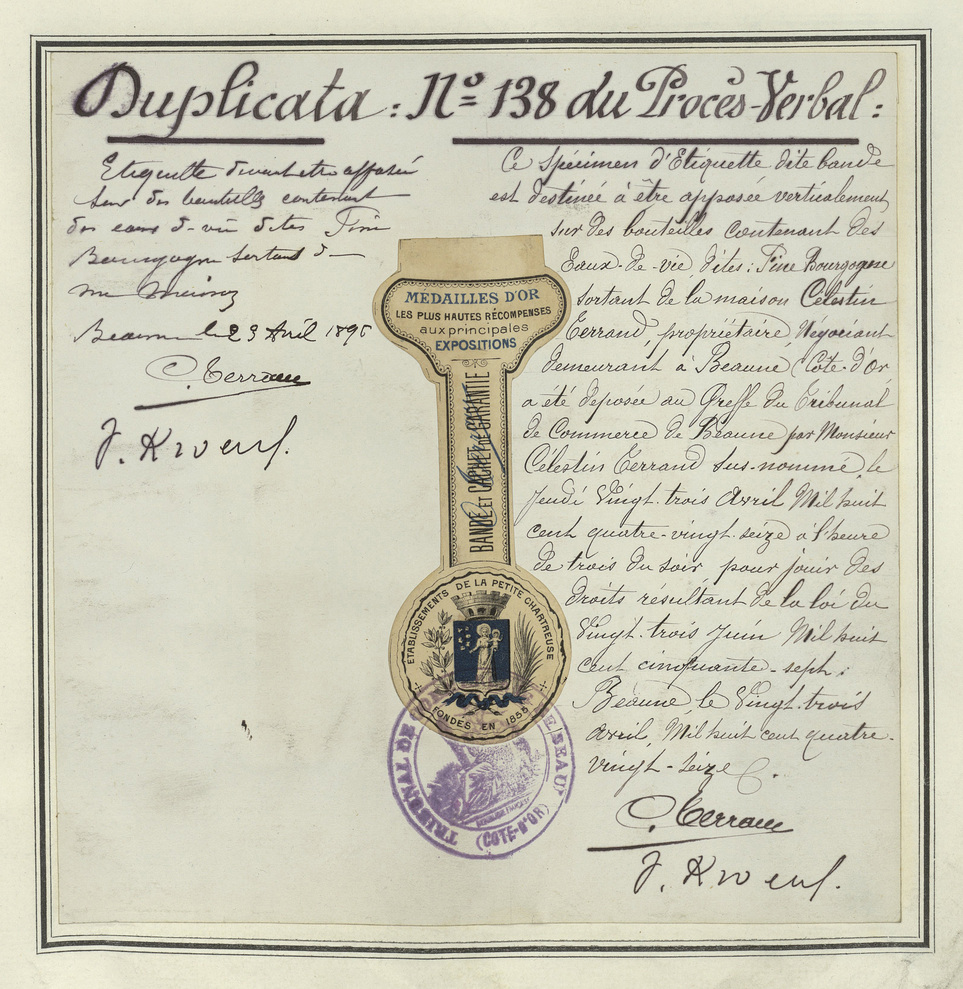 Duplicata : Nº 138 du Procès-Verbal :
Etiquette devant etre apposée
sur des bouteilles contenant
des eaux-de-vie dites Fine
Bourgogne sortant de
ma maison
Beaune le 23 Avril 1896
C. Terrand
Ce Spécimen d'Etiquette dite bande
est destinée à être apposée verticalement
sur des bouteilles contenant des
Eaux-de-vie dites : Fine Bourgogne
sortant de la maison Célestin
Terrand, propriétaire, Négociant
demeurant à Beaune (Côte-d'Or
a été déposée au Greffe du Tribunal
de Commerce de Beaune par Monsieur
Célestin Terrand sus-nommé, le
Jeudi Vingt-trois Avril Mil huit
cent quatre-vingt-seize à l'heure
de trois du soir pour jouir des
droits résultant de la loi du
Vingt-trois Juin Mil huit
cent cinquante-sept :
Beaune le Vingt-trois
Avril, Mil huit cent quatre-
vingt-seize
C. Terrand
MÉDAILLES D'OR
LES PLUS HAUTES RÉCOMPENSES
aux principales
EXPOSITIONS
BANDE ET CACHET DE GARANTIE
ETABLISSEMENTS DE LA PETITE CHARTREUSE
FONDÉS EN 1885
TRIBUNAL DE COM DE BEAU
(COTE-D'OR)